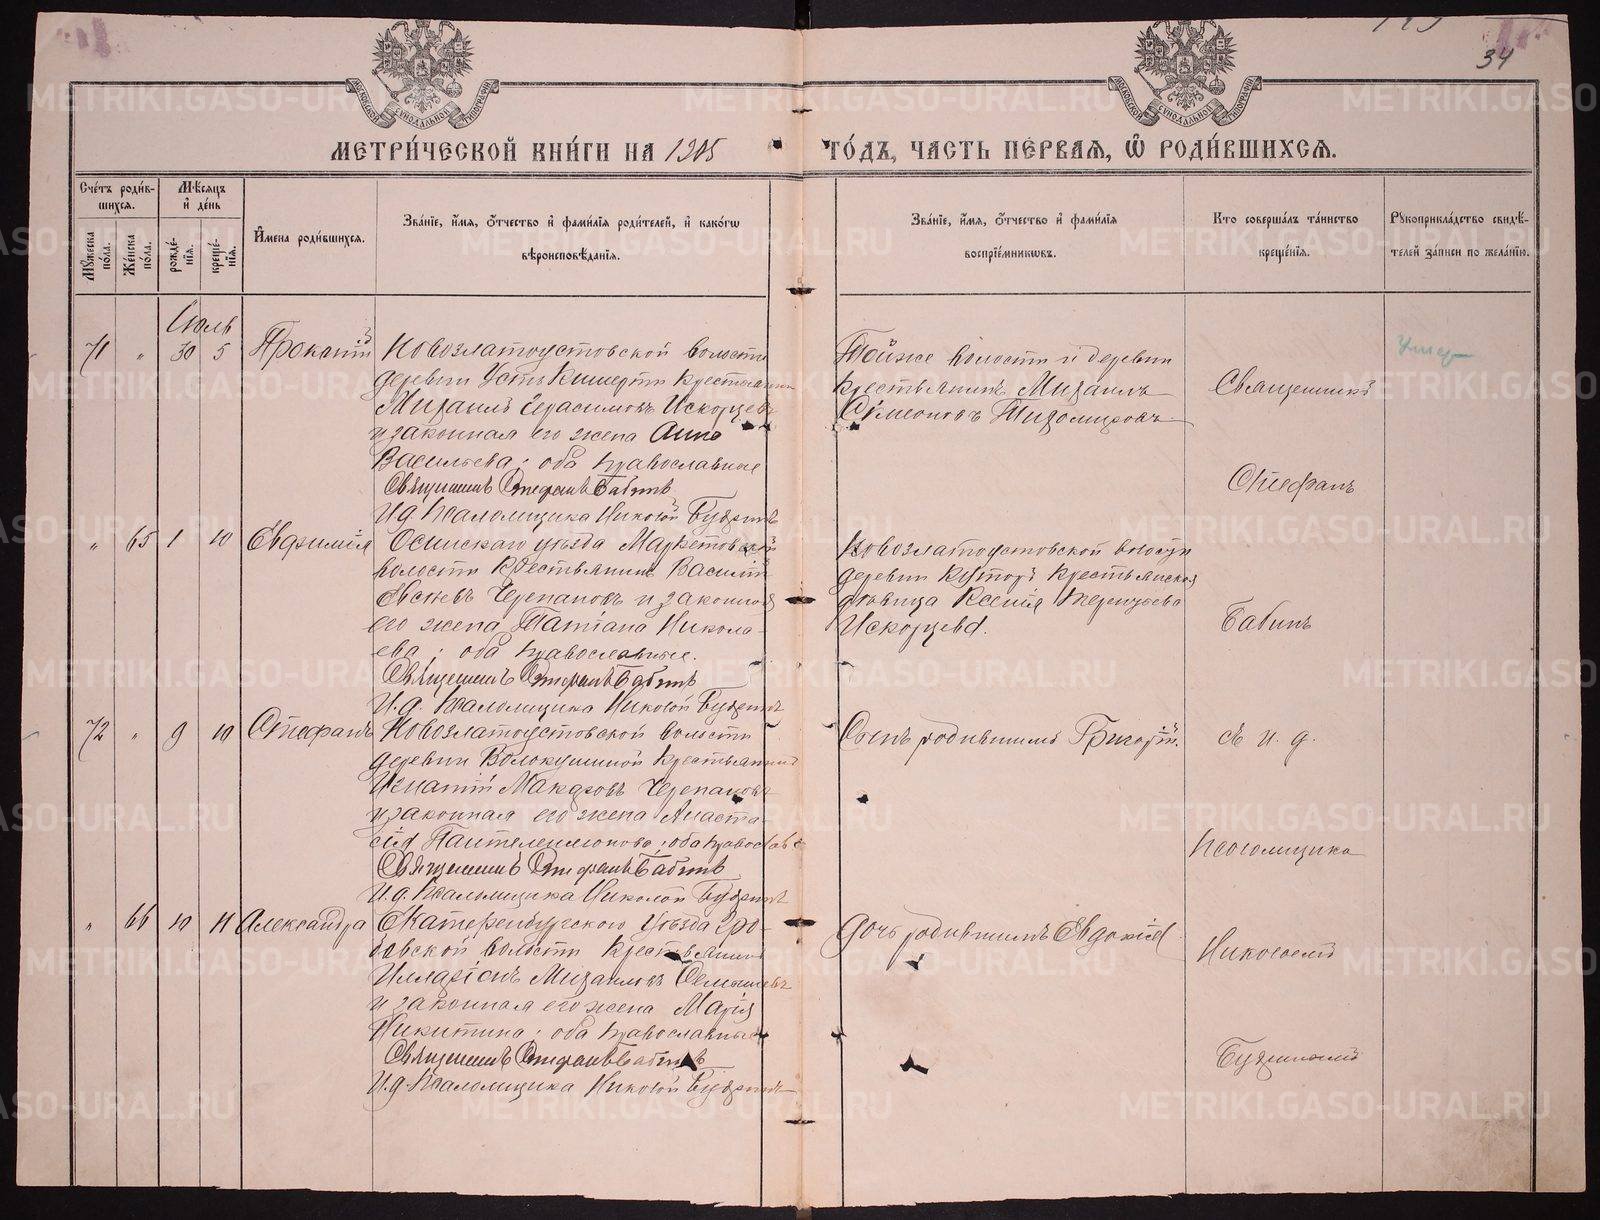 34
МОСКОВСКОЙ СѴНОДАЛЬНОЙ ТИПОГРАФІИ
МОСКОВСКОЙ СѴНОДАЛЬНОЙ ТИПОГРАФІИ
МЕТРИ́ЧЕСКОЙ КНИ́ГИ НА 1905
ГО́ДЪ, ЧАСТЬ ПЕ́РВАЯ, Ѡ РОДИ́ВШИХСЯ.
Сче́тъ роди́в-
шихся.
Му́жеска по́ла.
Же́нска по́ла.
Мѣ́сяцъ и де́нь
рожде́-
нія.
креще́-
нія.
И҆мена роди́вшихся.
Зва́ніе, и҆́мя, о҆́тчество и҆ фами́лія роди́телей, и҆ како́гѡ
вѣроисповѣ́данія.
Зва́ніе, и҆́мя, о҆́тчество и҆ фами́лія
воспріе́мникѡвъ.
Кто соверша́лъ та́инство
креще́нія.
Рꙋкоприкла́дство свидѣ́-
телей за́писи по жела́нію.
Іюль
71 " 30 5 Прокопій
Новозлатоустовской волости
деревни Усть Кишерти крестьянинъ
Михаилъ Герасимовъ Искорцевъ
и законная его жена Анна
Васильева; оба православные
Священникъ Стефанъ Бабинъ
И.д. Псаломщика Николай
Той же волости и деревни
крестьянинъ Михаилъ
Симеоновъ Тихомировъ
Священникъ
Стефанъ
Умер
" 65 1 10 Евфимія
Осинскаго уѣзда
волости крестьянинъ Василій
Черепановъ и законная
его жена Татіана Никола-
ева; оба православные.
Священникъ Стефанъ Бабинъ
И.д. Псаломщика Николай
Новозлатоустовской волости
деревни крестьянская
дѣвица Ксенія Терентьева
Искорцева.
Бабинъ
72 " 9 10 Стефанъ
Новозлатоустовской волости
деревни Волокушиной крестьянинъ
Игнатій Макаровъ Черепановъ
и законная его жена Анаста-
сія Пантелеимонова; оба православ
Священникъ Стефанъ Бабинъ
И.д. Псаломщика Николай
Сынъ родившимъ Григорій.
съ и. д.
Псаломщика
" 66 10 11 Александра
Екатеринбургского уѣзда Гро-
бовской волости крестьянинъ
Илларіонъ Михаиловъ
и законная его жена Марія
Никитина; оба православные
Священникъ Стефанъ Бабинъ
И.д. Псаломщика Николай
Дочь родившимъ Евдокія
Николаемъ
METRIKI.GASO-URAL.RU